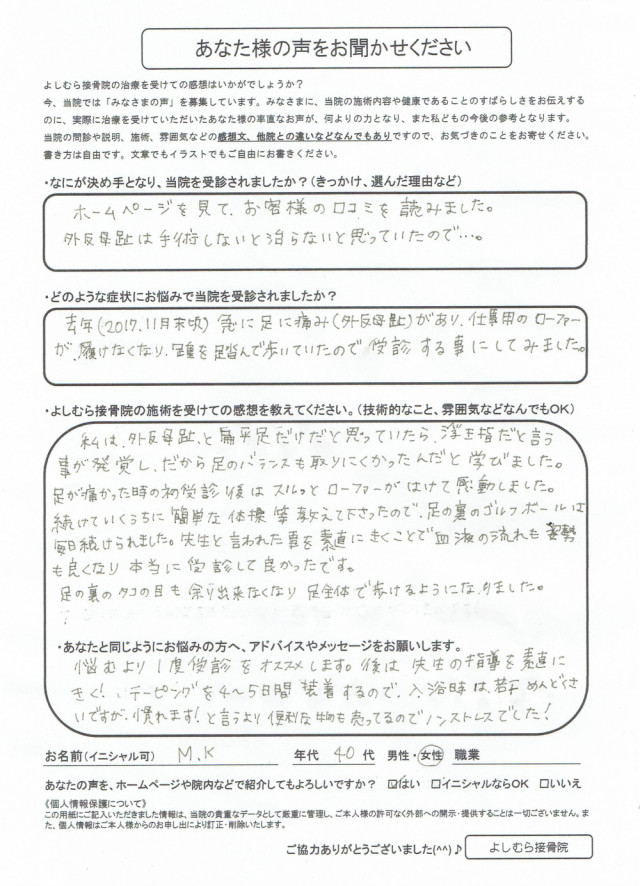 あなた様の声をお聞かせください
よしむら接骨院の治療を受けての感想はいかがでしょうか？
今、当院では「みなさまの声」を募集しています。みなさまに、当院の施術内容や健康であることのすばらしさをお伝えする
のに、実際に治療を受けていただいたあなた様の率直なお声が、何よりの力となり、また私どもの今後の参考となります。
当院の問診や説明、施術、雰囲気などの感想文、他院との違いなどなんでもありですので、お気づきのことをお寄せください。
書き方は自由です。文章でもイラストでもご自由にお書きください。
・なにが決め手となり、当院を受診されましたか？（きっかけ、選んだ理由など）
ホームページを見て、お客様の口コミを読みました。
外反母趾は手術しないと治らないと思っていたので…。
・どのような症状にお悩みで当院を受診されましたか？
去年(2017.11月末頃) 急に足に痛み(外反母趾)があり、仕事用のローファー
が、履けなくなり、踵を踏んで歩いていたので受診する事にしてみました。
・よしむら接骨院の施術を受けての感想を教えてください。（技術的なこと、雰囲気などなんでもOK）
私は、外反母趾、と扁平足だけだと思っていたら、浮き指だと言う
事が発覚し、だから足のバランスも取りにくかったんだと学びました。
足が痛かった時の初受診後はスルっとローファーがはけて感動しました。
続けていくうちに簡単な体操等教えて下さったので、足の裏のゴルフボールは
毎日続けられました。先生と言われた事を素直にきくことで血液の流れも姿勢
も良くなり本当に受診して良かったです。
足の裏のタコの目も余り出来なくなり足全体で歩けるようになりました。
・あなたと同じようにお悩みの方へ、アドバイスやメッセージをお願いします。
悩むより1度受診をオススメします。後は先生の指導を素直に
きく！、テーピングを4〜5日間装着するので、入浴時は、若干めんどくさ
いですが、慣れます！と言うより便利な物も売ってるのでノンストレスでした！
お名前（イニシャル可） M.K 年代 40代 男性・女性 職業
あなたの声を、ホームページや院内などで紹介してもよろしいですか？ ☑はい □イニシャルならOK □いいえ
《個人情報保護について》
この用紙にご記入いただきました情報は、当院の貴重なデータとして厳重に管理し、ご本人様の許可なく外部への開示・提供することは一切ございません。ま
た、個人情報はご本人様からのお申し出により訂正・削除いたします。
ご協力ありがとうございました(^^)♪ よしむら接骨院